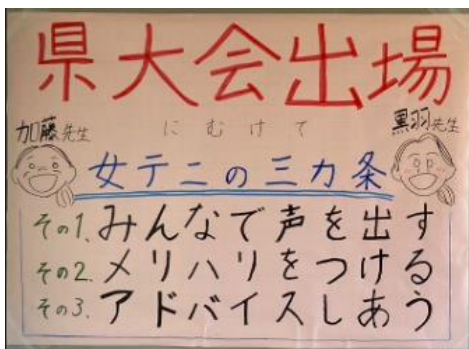 県大会出場
加藤先生 にむけて 黒羽先生
女テニの三カ条
その1.みんなで声を出す
その2.メリハリをつける
その3.アドバイスしあう